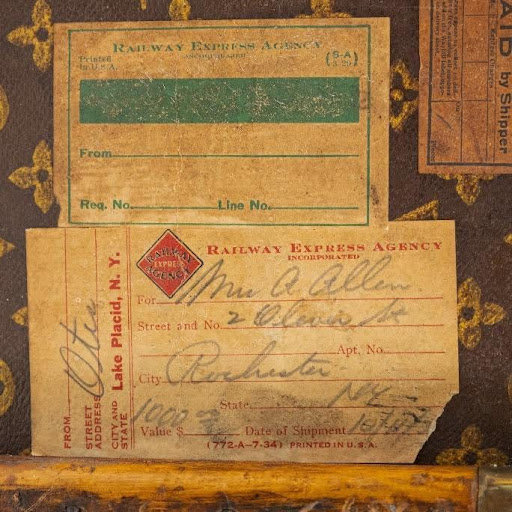 RAILWAY EXPRESS AGENCY
INCORPORATED
Printed
in U.S.A.
(5-A)
From
Req. No. Line No.
AID by Shipper
RAILWAY
EXPRESS
AGENCY
RAILWAY EXPRESS AGENCY
INCORPORATED
For Mrs A. Allen
Street and No. 2
Apt. No.
City Rochester
State N.Y.
Value $ 1000 Date of Shipment
(772-A-7-34) PRINTED IN U.S.A.
FROM
STREET
ADDRESS
CITY AND
STATE Lake Placid, N. Y.